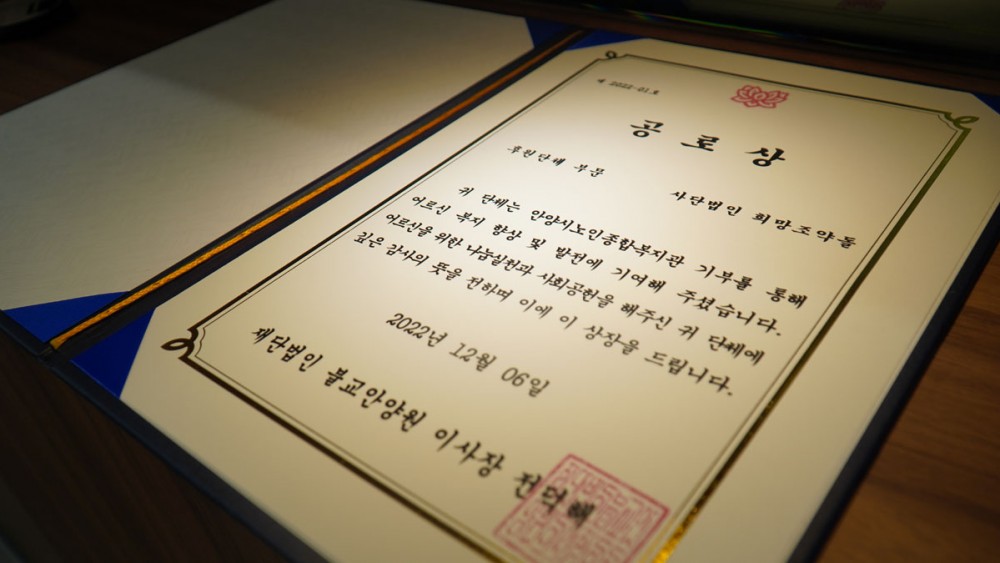 2022-01.호
공로상
후원단체 부문
사단법인 희망조약돌
귀 단체는 안양시노인종합복지관 기부를 통해
어르신 복지 향상 및 발전에 기여해 주셨습니다.
어르신을 위한 나눔실천과 사회공헌을 해주신 귀 단체에
깊은 감사의 뜻을 전하며 이에 이 상장을 드립니다.
2022년 12월 06일
재단법인 불교안양원 이사장